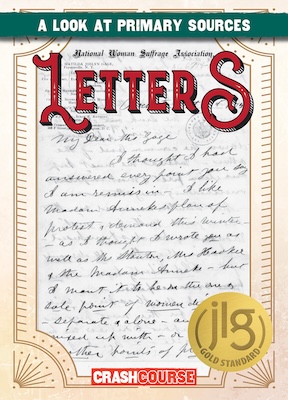 A LOOK AT PRIMARY SOURCES
National Woman Suffrage Association
LETTERS
My Dear Mrs Gage
I thought I had
answered every point you
I am remiss in. I like
Madam Annekes plan of
protest & demand this winter
- as I thought I wrote you as
well as Mrs Stanton, Mrs Hooker
& the Madam Anneke - but
I want it to be on the one
sole point of women
separate & alone -
up with - or
other points of
jlg
GOLD STANDARD
CRASHCOURSE